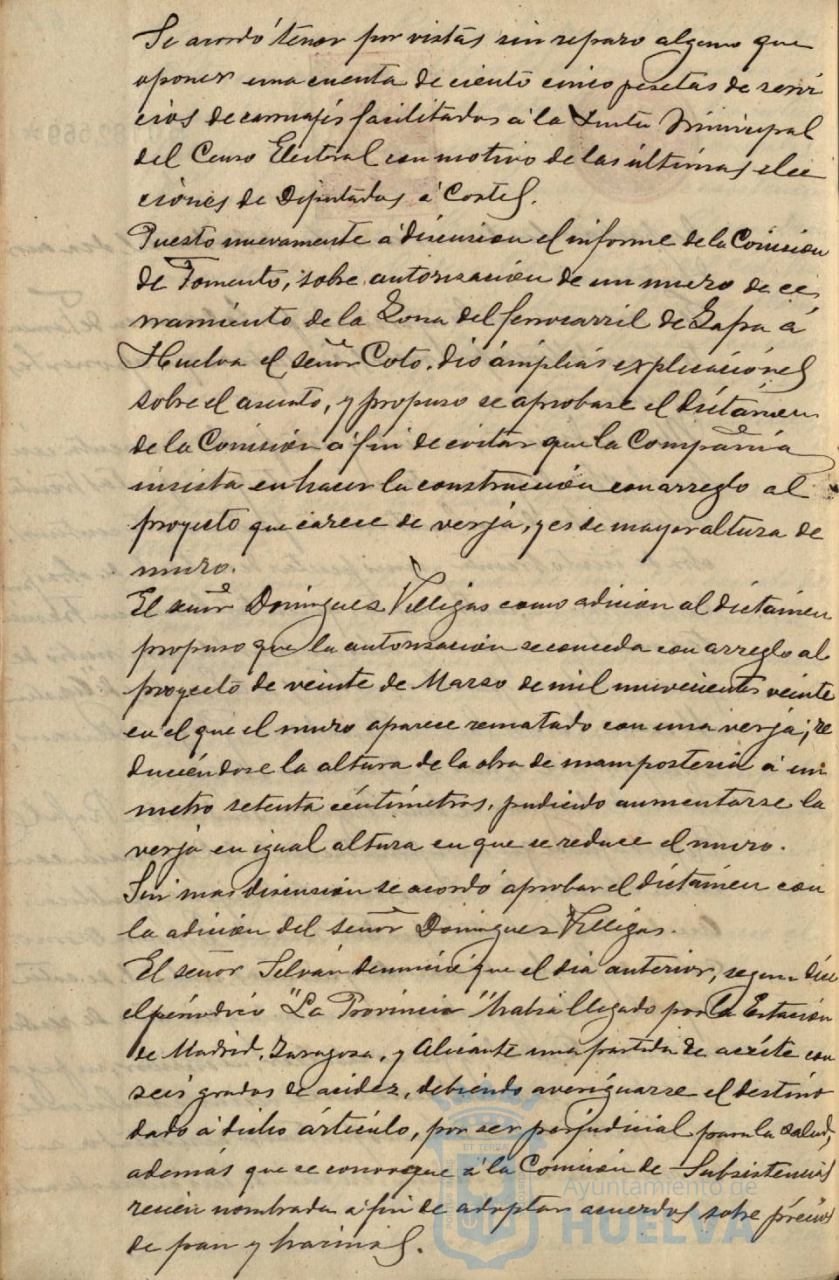 Se acordó tener por vistas sin reparo alguno que
oponer una cuenta de ciento cinco pesetas de servi
cios de carruajes facilitados á la Junta Municipal
del Censo Electoral con motivo de las últimas elec
ciones de Diputados á Cortes.
Puesto nuevamente á discusion el informe de la Comision
de Fomento, sobre autorización de un muro de ce
rramiento de la Zona del ferrocarril de Zafra á
Huelva el señor Coto, dió ámplias explicaciónes
sobre el asunto, y propuso se aprobase el dictámen
de la Comisión á fin de evitar que la Compañia
insista en hacer la construcción con arreglo al
proyecto que carece de verja, y es de mayor altura de
muro.
El señor Dominguez Villegas como adición al dictámen
propuso que la autorización se conceda con arreglo al
proyecto de veinte de Marzo de mil novecientos veinte
en el que el muro aparece rematado con una verja; re
duciéndose la altura de la obra de mamposteria á un
metro setenta céntímetros, pudiendo aumentarse la
verja en igual altura en que se reduce el muro.
Sin mas discusión se acordó aprobar el dictámen con
la adición del señor Dominguez Villegas.
El señor Selván denunció que el dia anterior, segun dice
el periodico "La Provincia" habia llegado por la Estación
de Madrid, Zaragoza, y Alicante una partida de aceite con
seis grados de acidez, debiendo averiguarse el destino
dado á dicho ártículo, por ser perjudicial para la salud,
además que se convoque á la Comisión de Subsistencias
recien nombrada á fin de adoptar acuerdos sobre précios
de pan y harinas.
Ayuntamiento de
HUELVA